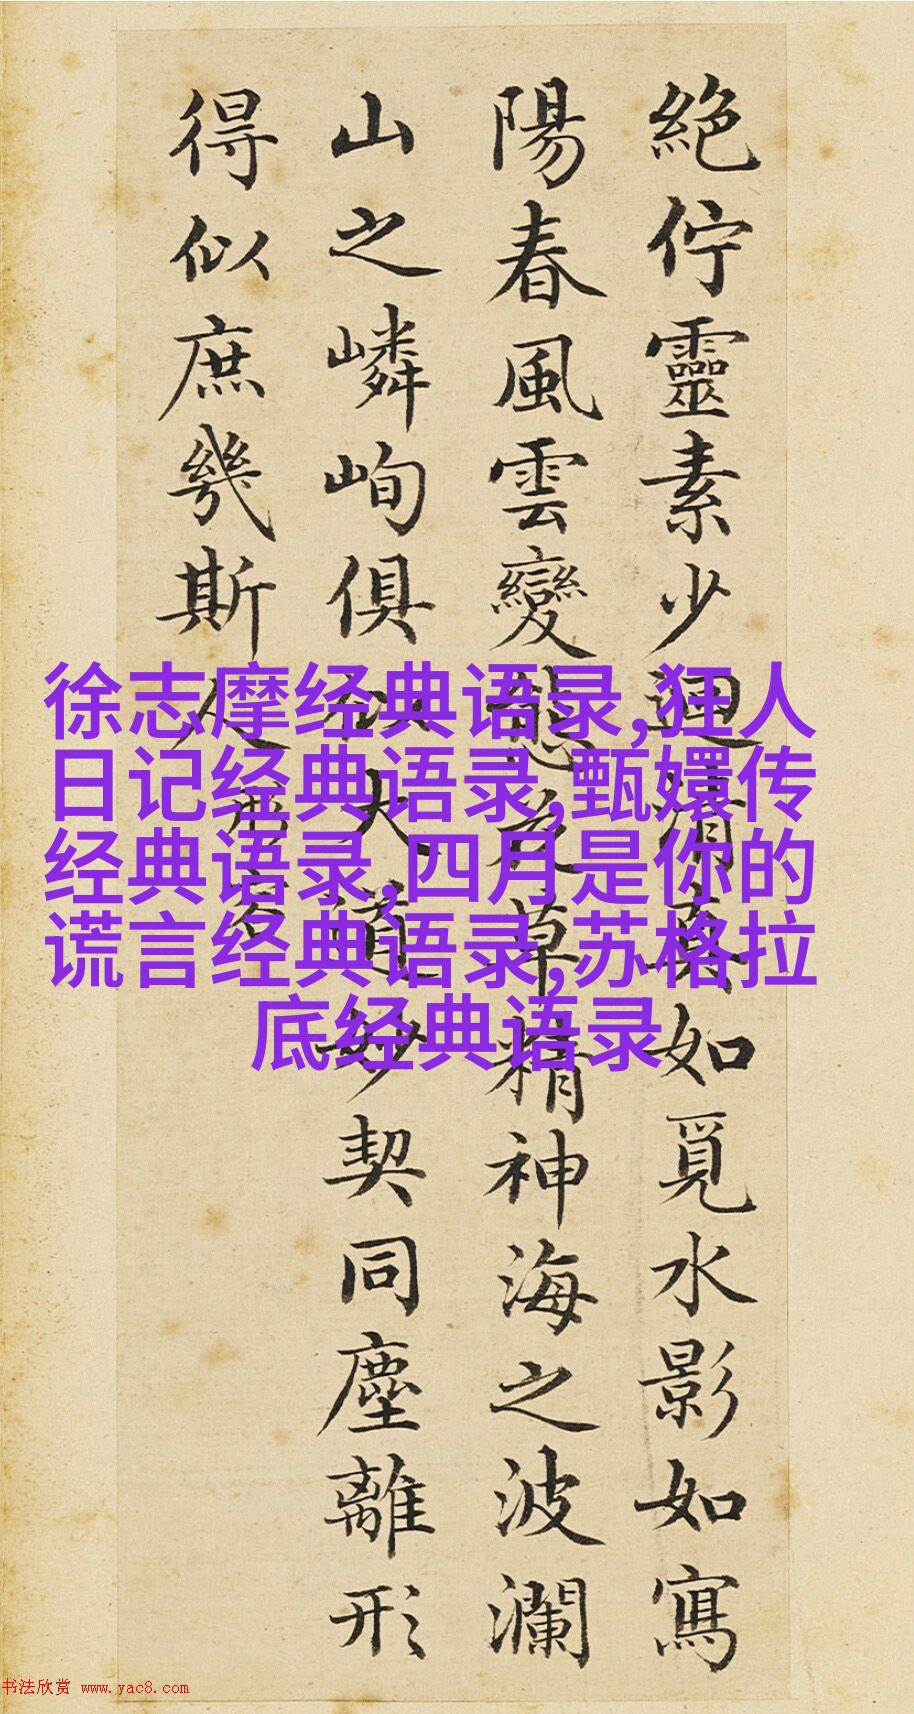 絕佇靈素少迴清真如覓水影如寫
陽春風雲變態花草精神海之波瀾
山之嶙峋俱似大道妙契同塵離形
得似庶幾斯人
徐志摩经典语录,狂人
日记经典语录,甄嬛传
经典语录,四月是你的
谎言经典语录,苏格拉
底经典语录
书法欣赏 www.yac8.com